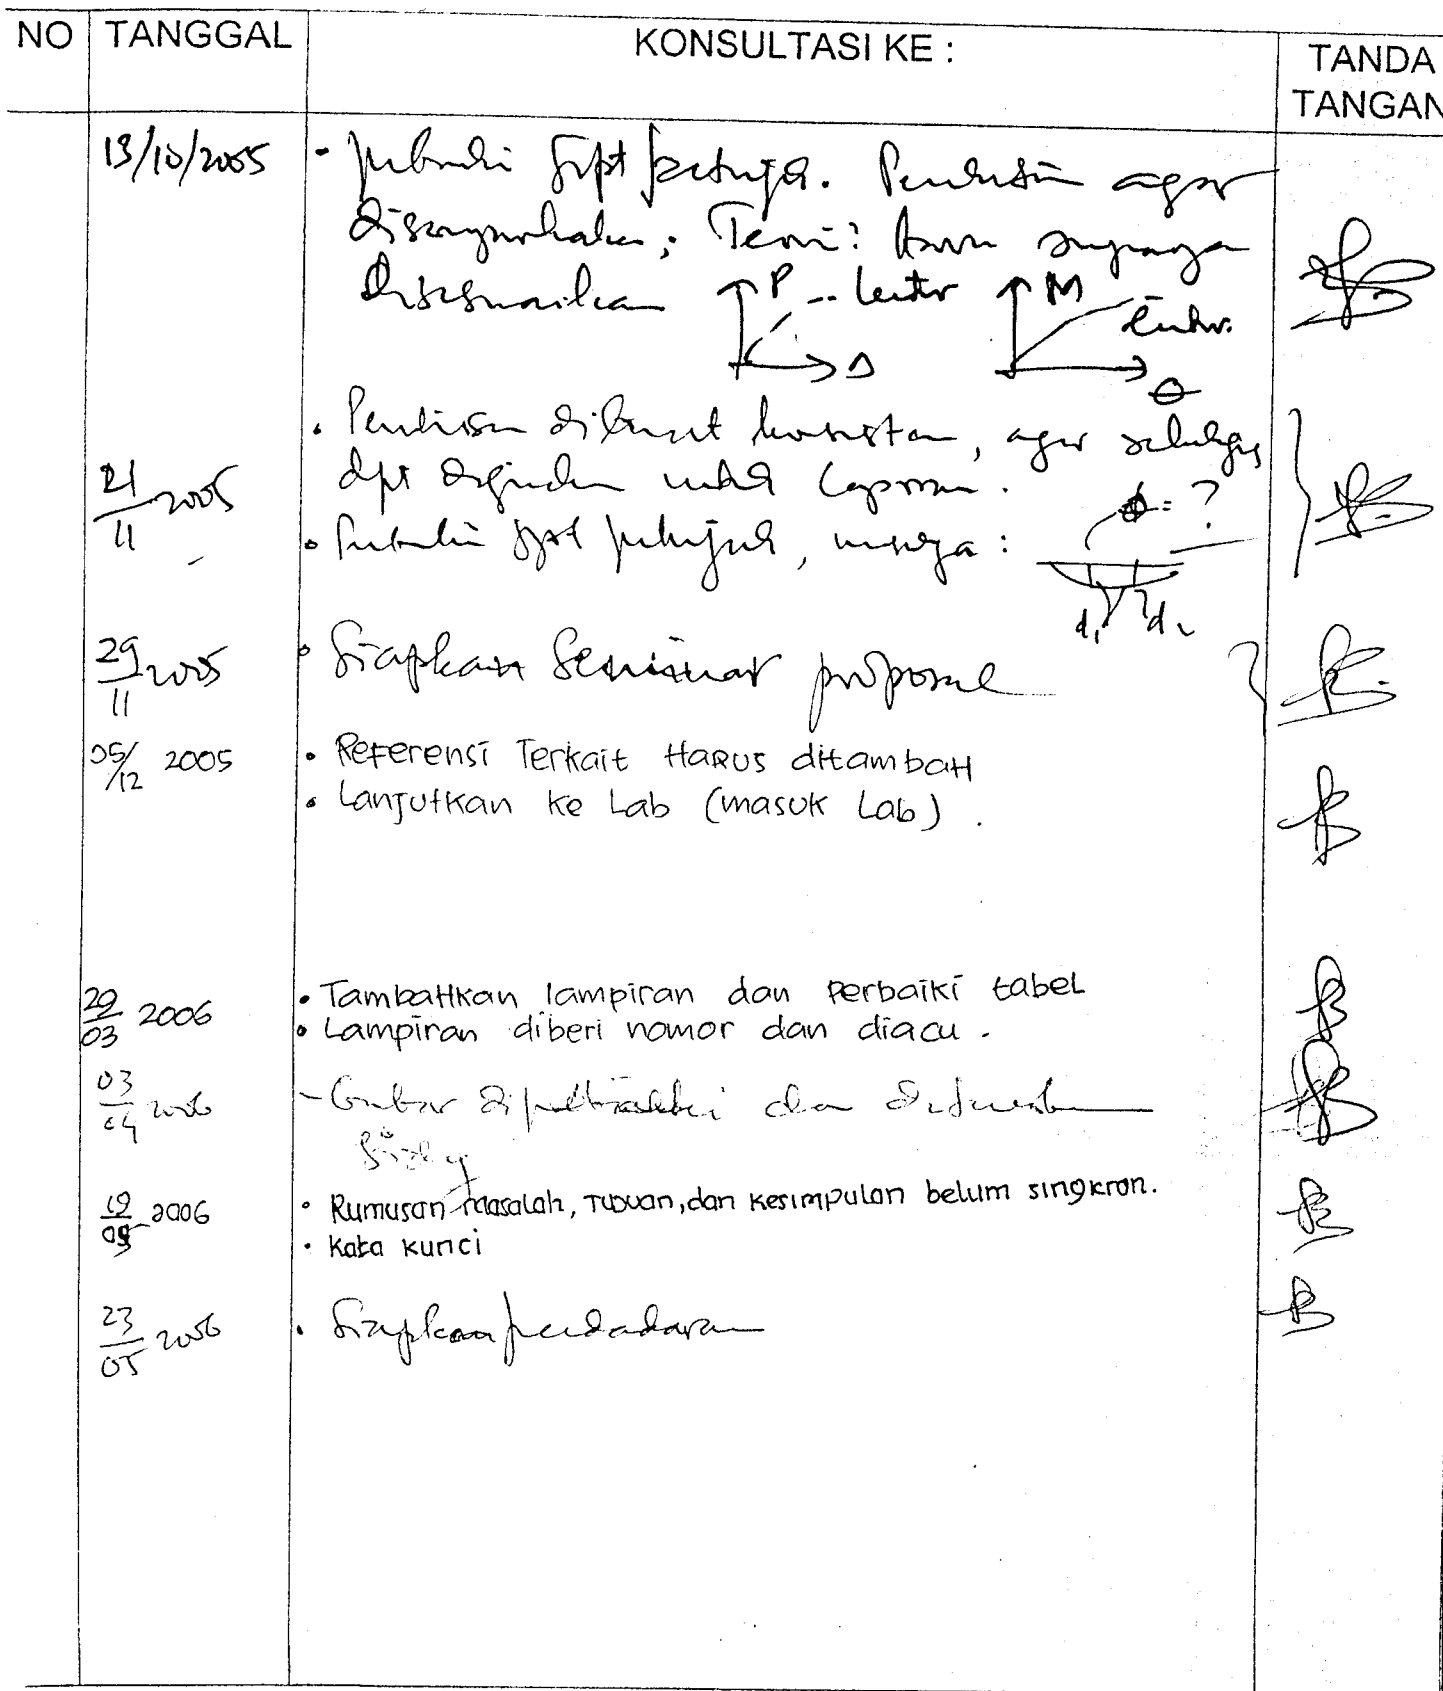 NO TANGGAL KONSULTASI KE : TANDA TANGAN
13/10/2005 • perbaiki spt petunjuk. Penulisan agar
disempurnakan; Teori: harus supaya
disesuaikan P lentur M lentur.
Δ θ
21/11 2005 • Penulisan dibuat konsisten, agar sekaligus
dpt digunakan untuk laporan.
• Perbaiki spt petunjuk, misalnya: ϕ = ?
d₁ d₂
29/11 2005 • Siapkan Seminar proposal
05/12 2005 • Referensi Terkait HARUS ditambaH
• Lanjutkan ke Lab (masuk Lab) .
29/03 2006 • TambaHkan lampiran dan Perbaiki tabel
• Lampiran diberi nomor dan diacu .
03/04 2006 - Gambar diperbaiki dan
19/05 2006 • Rumusan masalah, Tujuan, dan kesimpulan belum singkron.
• Kata kunci
23/05 2006 • Siapkan pendadaran